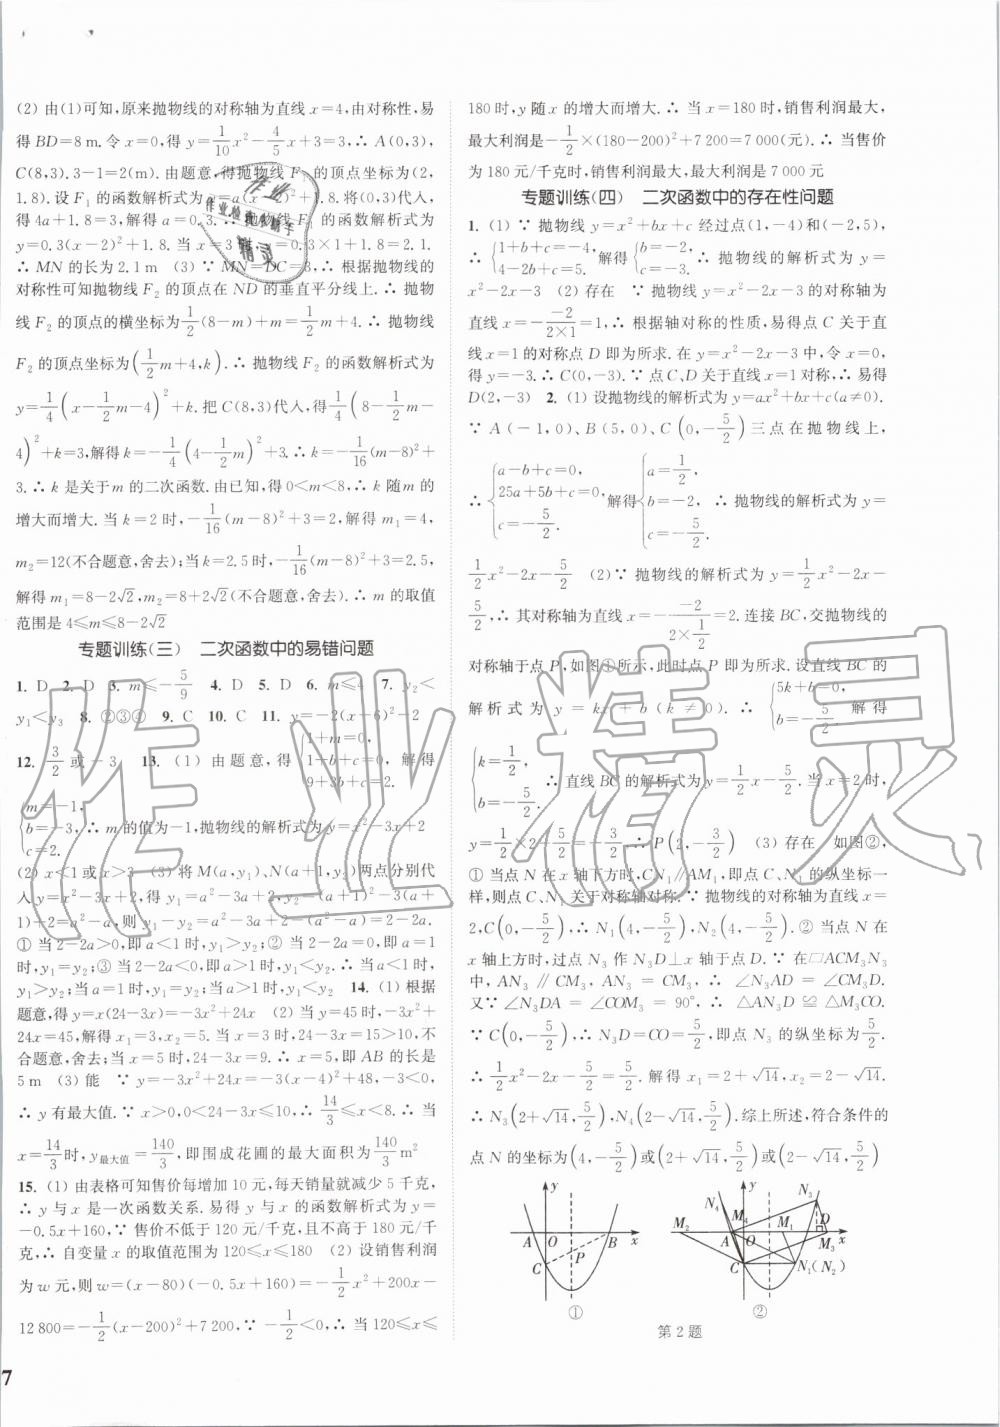 (2) 由(1)可知,原来抛物线的对称轴为直线 x=4,由对称性,易
得 BD=8 m.令 x=0,得 y=1/10x²-4/5x+3=3,∴ A(0,3),
C(8,3).3-1=2(m).由题意,得抛物线 F₁ 的顶点坐标为(2,
1.8).设 F₁ 的函数解析式为 y=a(x-2)²+1.8.将(0,3)代入,
得 4a+1.8=3,解得 a=0.3.∴ 抛物线 F₁ 的函数解析式为
y=0.3(x-2)²+1.8.当 x=3 时,y=0.3×1+1.8=2.1.
∴ MN 的长为 2.1 m (3) ∵ MN=DC=3,∴ 根据抛物线的
对称性可知抛物线 F₂ 的顶点在 ND 的垂直平分线上.∴ 抛物
线 F₂ 的顶点的横坐标为1/2(8-m)+m=1/2m+4.∴ 抛物线
F₂ 的顶点坐标为(1/2m+4,k).∴ 抛物线 F₂ 的函数解析式为
y=1/4(x-1/2m-4)²+k.把 C(8,3)代入,得1/4(8-1/2m-
4)²+k=3,解得 k=-1/4(-1/2m+4)²+3.∴ k=-1/16(m-8)²+
3.∴ k 是关于 m 的二次函数.由已知,得 0<m<8,∴ k 随 m 的
增大而增大.当 k=2 时,-1/16(m-8)²+3=2,解得 m₁=4,
m₂=12(不合题意,舍去);当 k=2.5 时,-1/16(m-8)²+3=2.5,
解得 m₁=8-2√2,m₂=8+2√2(不合题意,舍去).∴ m 的取值
范围是 4≤m≤8-2√2
专题训练(三) 二次函数中的易错问题
1. D 2. D 3. m≤-5/9 4. D 5. D 6. m≤4 7. y₂<
y₁<y₃ 8. ②③④ 9. C 10. C 11. y=-2(x-6)²-2
12. 3/2或-3 13. (1) 由题意,得{1+m=0, 1+b+c=0, 9+3b+c=2. 解得
{m=-1, b=-3, c=2. ∴ m 的值为-1,抛物线的解析式为 y=x²-3x+2
(2) x<1 或 x>3 (3) 将 M(a,y₁)、N(a+1,y₂)两点分别代
入 y=x²-3x+2,得 y₁=a²-3a+2,y₂=(a+1)²-3(a+
1)+2=a²-a,则 y₁-y₂=a²-3a+2-(a²-a)=2-2a.
① 当 2-2a>0,即 a<1 时,y₁>y₂;② 当 2-2a=0,即 a=1
时,y₁=y₂;③ 当 2-2a<0,即 a>1 时,y₁<y₂.∴ 当 a<1 时,
y₁>y₂;当 a=1 时,y₁=y₂;当 a>1 时,y₁<y₂ 14. (1) 根据
题意,得 y=x(24-3x)=-3x²+24x (2) 当 y=45 时,-3x²+
24x=45,解得 x₁=3,x₂=5.当 x=3 时,24-3x=15>10,不
合题意,舍去;当 x=5 时,24-3x=9.∴ x=5,即 AB 的长是
5 m (3) 能 ∵ y=-3x²+24x=-3(x-4)²+48,-3<0,
∴ y 有最大值.∵ x>0,0<24-3x≤10,∴ 14/3≤x<8.∴ 当
x=14/3时,y最大值=140/3,即围成花圃的最大面积为140/3m²
15. (1) 由表格可知售价每增加 10 元,每天销量就减少 5 千克,
∴ y 与 x 是一次函数关系.易得 y 与 x 的函数解析式为 y=
-0.5x+160,∵ 售价不低于 120 元/千克,且不高于 180 元/千
克,∴ 自变量 x 的取值范围为 120≤x≤180 (2) 设销售利润
为 w 元,则 w=(x-80)(-0.5x+160)=-1/2x²+200x-
12 800=-1/2(x-200)²+7 200,∵ -1/2<0,∴ 当 120≤x≤
180 时,y 随 x 的增大而增大.∴ 当 x=180 时,销售利润最大,
最大利润是-1/2×(180-200)²+7 200=7 000(元).∴ 当售价
为 180 元/千克时,销售利润最大,最大利润是 7 000 元
专题训练(四) 二次函数中的存在性问题
1. (1) ∵ 抛物线 y=x²+bx+c 经过点(1,-4)和(-2,5),
∴ {1+b+c=-4, 4-2b+c=5. 解得{b=-2, c=-3. ∴ 抛物线的解析式为 y=
x²-2x-3 (2) 存在 ∵ 抛物线 y=x²-2x-3 的对称轴为
直线 x=--2/2×1=1,∴ 根据轴对称的性质,易得点 C 关于直
线 x=1 的对称点 D 即为所求.在 y=x²-2x-3 中,令 x=0,
得 y=-3.∴ C(0,-3).∵ 点 C、D 关于直线 x=1 对称,∴ 易得
D(2,-3) 2. (1) 设抛物线的解析式为 y=ax²+bx+c(a≠0).
∵ A(-1,0)、B(5,0)、C(0,-5/2)三点在抛物线上,
∴ {a-b+c=0, 25a+5b+c=0, c=-5/2. 解得{a=1/2, b=-2, c=-5/2. ∴ 抛物线的解析式为 y=
1/2x²-2x-5/2 (2) ∵ 抛物线的解析式为 y=1/2x²-2x-
5/2,∴ 其对称轴为直线 x=--2/2×1/2=2.连接 BC,交抛物线的
对称轴于点 P,如图①所示,此时点 P 即为所求.设直线 BC 的
解析式为 y=kx+b(k≠0).∴ {5k+b=0, b=-5/2. 解得
{k=1/2, b=-5/2. ∴ 直线 BC 的解析式为 y=1/2x-5/2.当 x=2 时,
y=1/2×2-5/2=-3/2.∴ P(2,-3/2) (3) 存在 如图②,
① 当点 N 在 x 轴下方时,CN₁∥AM₁,即点 C、N₁ 的纵坐标一
样,则点 C、N₁ 关于对称轴对称.∵ 抛物线的对称轴为直线 x=
2,C(0,-5/2),∴ N₁(4,-5/2),N₂(4,-5/2).② 当点 N 在
x 轴上方时,过点 N₃ 作 N₃D⊥x 轴于点 D.∵ 在▱ACM₃N₃
中,AN₃∥CM₃,AN₃=CM₃,∴ ∠N₃AD=∠CM₃D.
又∵ ∠N₃DA=∠COM₃=90°,∴ △AN₃D≌△M₃CO.
∵ C(0,-5/2),∴ N₃D=CO=5/2,即点 N₃ 的纵坐标为5/2.
∴ 1/2x²-2x-5/2=5/2.解得 x₁=2+√14,x₂=2-√14.
∴ N₃(2+√14,5/2),N₄(2-√14,5/2).综上所述,符合条件的
点 N 的坐标为(4,-5/2)或(2+√14,5/2)或(2-√14,5/2)
y A O B x C P ①
N₄ y N₃ M₂ M₄ A O M₁ D M₃ x C N₁(N₂) ②
第 2 题
7
作业精灵
作业检查小帮手